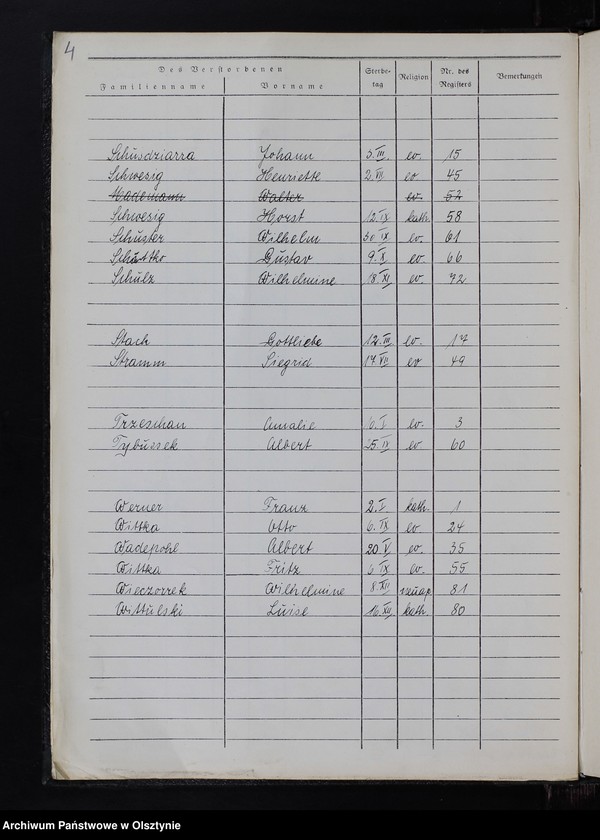 4
Des Verstorbenen
Familienname Vorname Sterbe-tag Religion Nr. des Registers Bemerkungen
Schusdziarra Johann 3. III. ev. 15
Schwesig Henriette 2. VII. ev 45
Madelmann Walter ev. 52
Schwesig Horst 12. IX kath. 58
Schuster Wilhelm 30. IX ev. 61
Schattko Gustav 9. X. ev. 66
Schulz Wilhelmine 18. XI ev. 72
Stach Gottliebe 12. III ev. 17
Stramm Siegrid 17. VII ev 49
Trzeschan Amalie 6. I ev. 3
Tybussek Albert 25. IX ev 60
Werner Franz 2. I kath. 1
Wittka Otto 6. IX ev 24
Wadepohl Albert 20 V ev. 35
Wittka Fritz 6 IX ev. 55
Wieczorrek Wilhelmine 8. XII neuap 81
Wittulski Luise 16. XII kath. 80
Archiwum Państwowe w Olsztynie